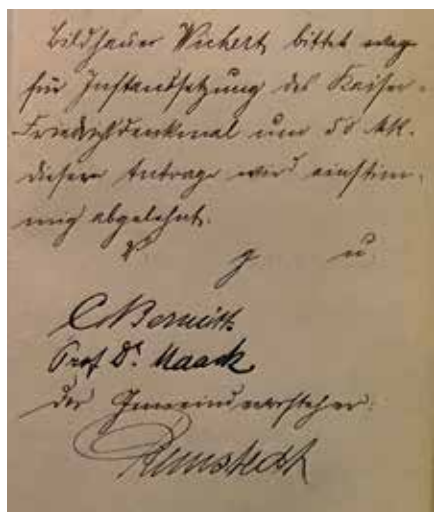 Bildhauer Wichert, bittet
für Instandsetzung des Kaiser-
Friedrichdenkmal um 50 Mk.
diesem Antrage wird einstim-
mig abgelehnt.
v g u
Prof Dr. Maack
Der Gemeindevorsteher: